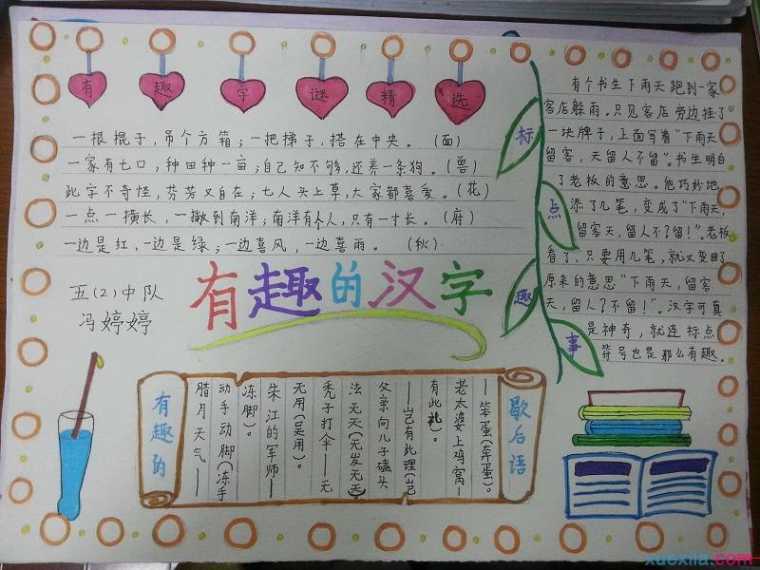 有趣字谜精选
一根棍子，吊个方箱；一把梯子，搭在中央。（面）
一家有七口，种田种一亩；自己知不够，还养一条狗。（兽）
此字不奇怪，芬芳又自在；七人头上草，大家都喜爱。（花）
一点一横长，一撇到南洋；南洋有个人，只有一寸长。（府）
一边是红，一边是绿；一边喜风，一边喜雨。（秋）
五（2）中队
冯婷婷
有趣的汉字
标点趣事
有个书生下雨天跑到一家
客店躲雨，只见客店旁边挂了
一块牌子，上面写着“下雨天
留客，天留人不留”。书生明白
了老板的意思。他巧妙地
添了几笔，变成了“下雨天，
留客天，留人不？留！”。老板
看了，只要用几笔，就又变回了
原来的意思“下雨天，留客
天，留人？不留！”。汉字可真
是神奇，就连标点
符号也是那么有趣。
歇后语
——笨蛋（奔蛋）。
老太婆上鸡窝—
有此礼）。
——岂有此理（岂
父亲向儿子磕头
法无天（无发无天）
秃子打伞——无
无用（吴用）。
宋江的军师——
冻脚）。
动手动脚（冻手
腊月天气——
有趣的
xuexila.com